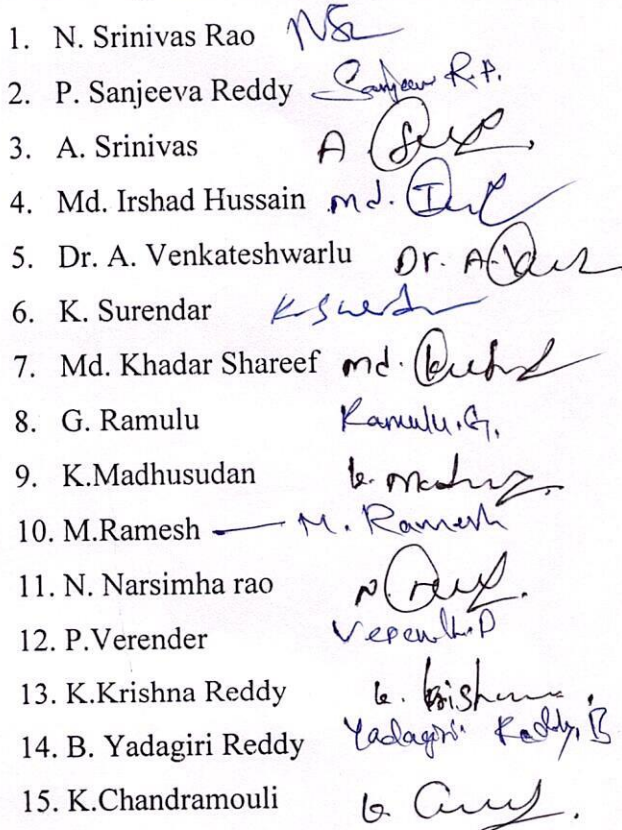 1. N. Srinivas Rao NSR
2. P. Sanjeeva Reddy Sanjeev R.P.
3. A. Srinivas A
4. Md. Irshad Hussain md.
5. Dr. A. Venkateshwarlu Dr. A.
6. K. Surendar
7. Md. Khadar Shareef md.
8. G. Ramulu Ramulu.G.
9. K.Madhusudan k.
10. M.Ramesh M. Ramesh
11. N. Narsimha rao N.
12. P.Verender
13. K.Krishna Reddy k. krishna
14. B. Yadagiri Reddy Yadagiri Reddy, B
15. K.Chandramouli k.